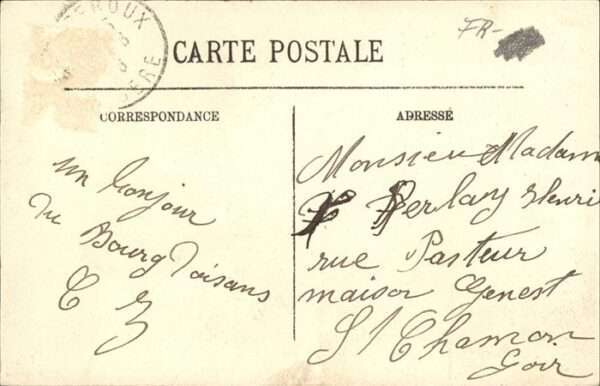 EROUX
ISERE
FR-
CARTE POSTALE
CORRESPONDANCE
ADRESSE
un bonjour
du Bourg d'oisans
C Z
Monsieur Madam
Perlay Henri
rue Pasteur
maison Genest
St Chamon
Loir